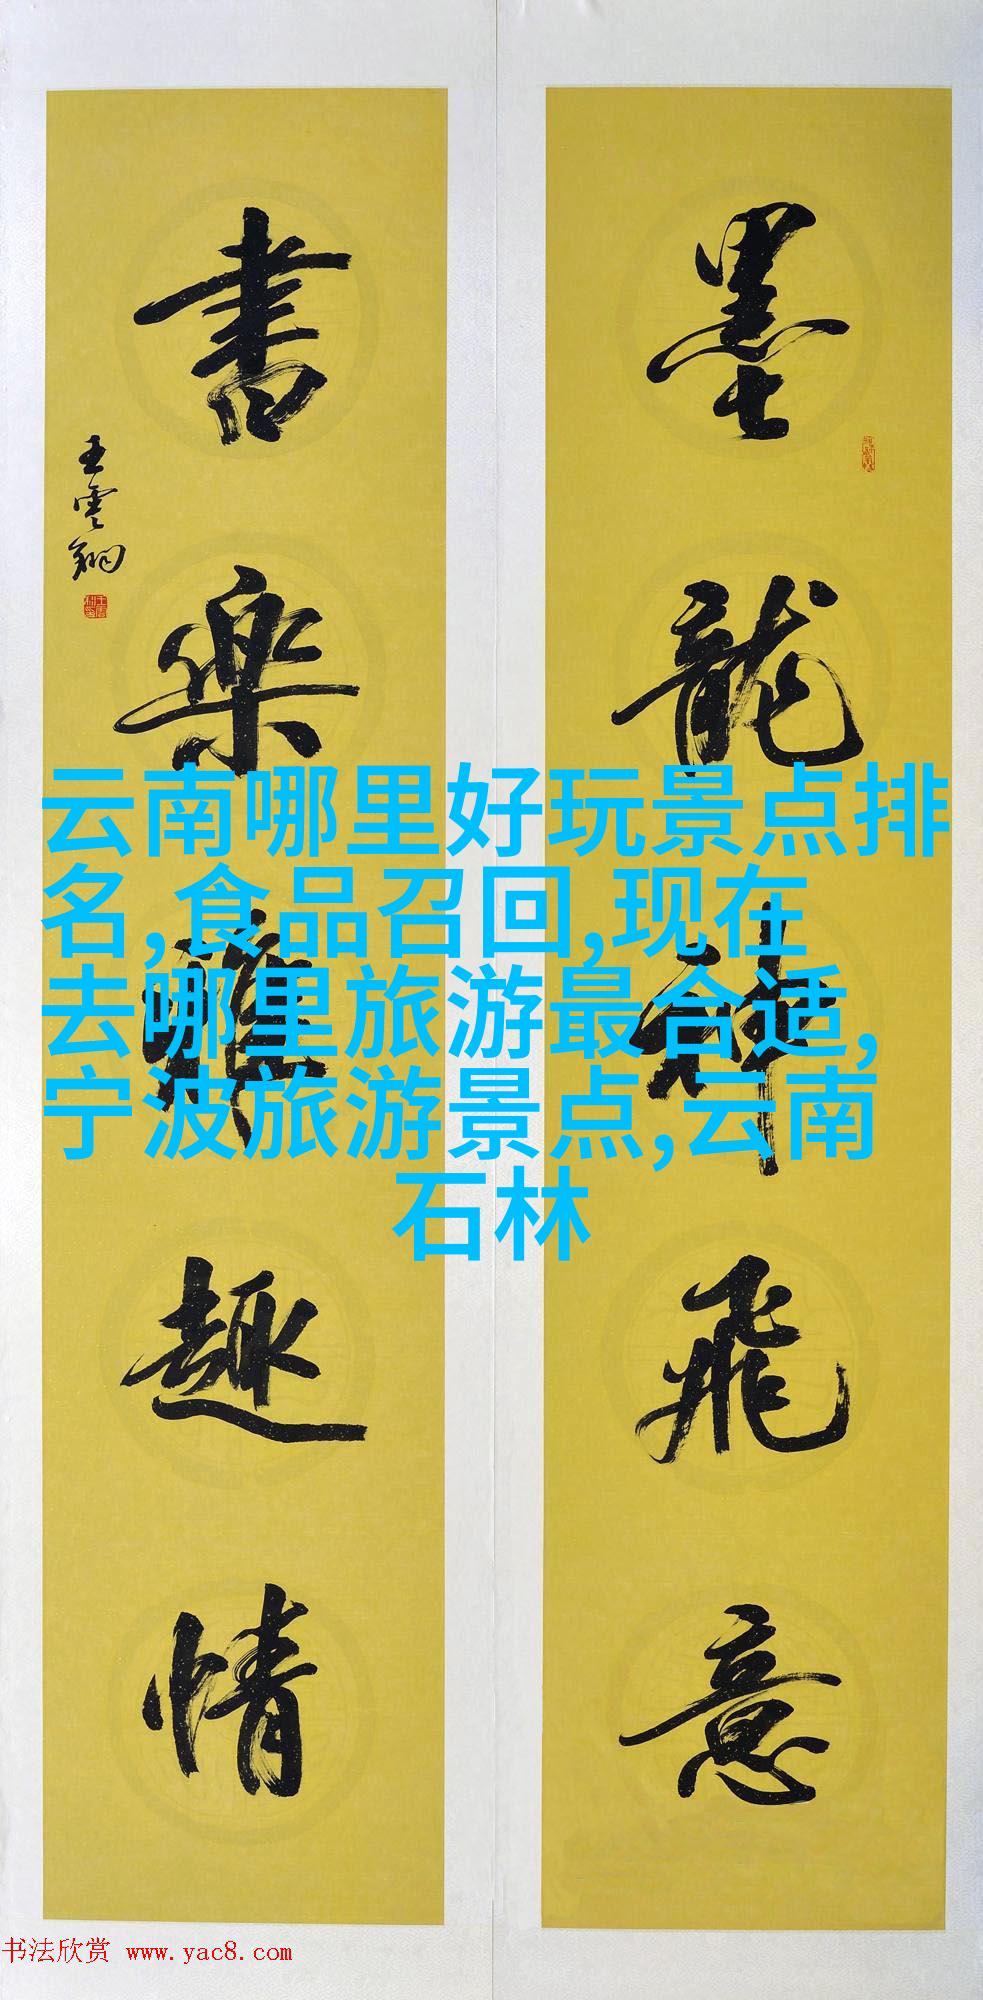 墨龍神飛意
書樂雅趣情
王雲翔
云南哪里好玩景点排
名,食品召回,现在
去哪里旅游最合适,
宁波旅游景点,云南
石林
书法欣赏 www.yac8.com